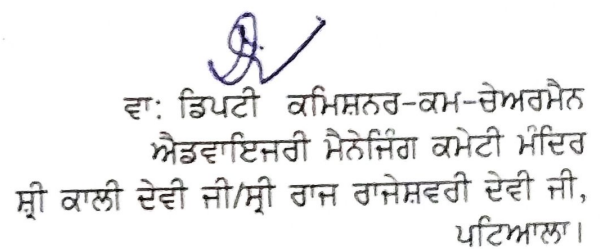 ਵਾ: ਡਿਪਟੀ ਕਮਿਸ਼ਨਰ-ਕਮ-ਚੇਅਰਮੈਨ
ਐਡਵਾਇਜਰੀ ਮੈਨੇਜਿੰਗ ਕਮੇਟੀ ਮੰਦਿਰ
ਸ਼੍ਰੀ ਕਾਲੀ ਦੇਵੀ ਜੀ/ਸ੍ਰੀ ਰਾਜ ਰਾਜੇਸ਼ਵਰੀ ਦੇਵੀ ਜੀ,
ਪਟਿਆਲਾ।